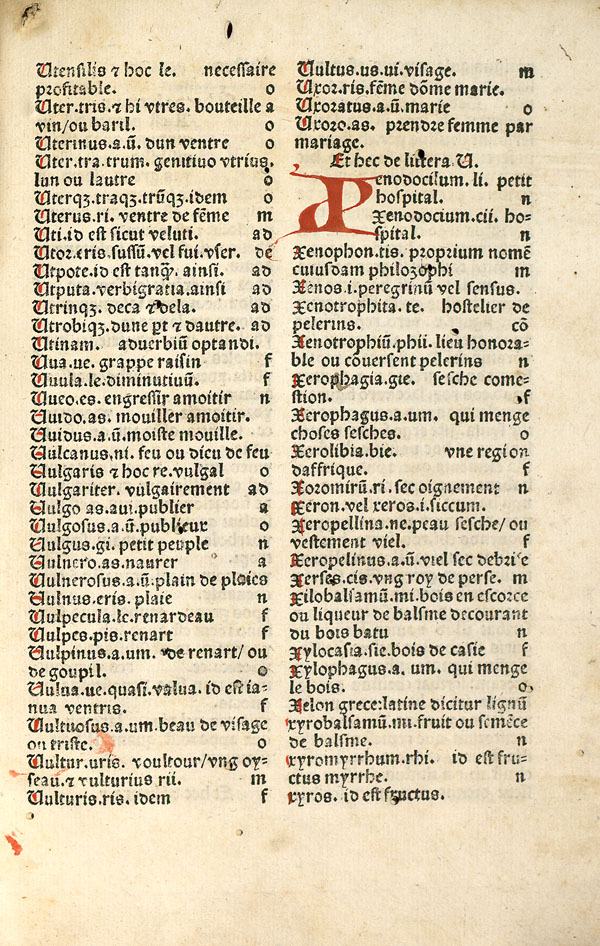 Utensilis ⁊ hoc le. necessaire
profitable. o
Uter.tris.⁊ hi vtres. bouteille a
vin/ou baril. o
Uterinus.a.ũ. dun ventre o
Uter.tra.trum. genitiuo vtrius.
lun ou lautre o
Uterqꝫ.traqꝫ.trũqꝫ.idem o
Uterus.ri. ventre de fẽme m
Uti.id est sicut veluti. ad
Utor.eris.sussũ.vel fui.vser. de
Utpote.id est tanqꝫ. ainsi. ad
Utputa.verbigratia.ainsi ad
Utrinqꝫ. deca ⁊ dela. ad
Utrobiqꝫ.dune pt ⁊ dautre. ad
Utinam. aduerbiũ optandi.
Uua.ue. grappe raisin f
Uuula.le.diminutiuũ. f
Uueo.es.engressir amoitir n
Uuido.as. mouiller amoitir.
Uuidus.a.ũ.moiste mouille.
Uulcanus.ni. feu ou dieu de feu
Uulgaris ⁊ hoc re.vulgal o
Uulgariter. vulgairement ad
Uulgo as.aui.publier a
Uulgosus.a.ũ.publieur o
Uulgus.gi. petit peuple n
Uulnero.as.naurer a
Uulnerosus.a.ũ.plain de plaies
Uulnus.eris. plaie n
Uulpecula.le.renardeau f
Uulpes.pis.renart f
Uulpinus.a.um. de renart/ ou
de goupil. o
Uulua.ue.quasi.valua. id est ia-
nua ventris. f
Uultuosus.a.um.beau de visage
ou triste. o
Uultur.uris. voultour/vng oy-
seau.⁊ vulturius rii. m
Uulturis.ris. idem f
Uultus.us.ui.visage. m
Uxor.ris.fẽme dõme marie.
Uxoratus.a.ũ.marie o
Uxoro.as. prendere femme par
mariage.
Et hec de littera U.
Xenodocilum.li. petit
hospital. n
Xenodocium.cii. ho-
spital. n
Xenophon.tis. proprium nomẽ
cuiusdam philozophi m
Xenos.i.peregrinũ vel sensus.
Xenotrophita.te. hostelier de
pelerins. cõ
Xenotrophiũ.phii. lieu honora-
ble ou cõuersent pelerins n
Xerophagia.gie. sesche come-
stion. f
Xerophagus.a.um. qui menge
choses sesches. o
Xerolibia.bie. vne region
daffrique. f
Xoromirũ.ri. sec oignement n
Xeron.vel xeros.i.siccum.
Xeropellina.ne.peau sesche/ ou
vestement viel. f
Xeropelinus.a.ũ.viel sec debrise
Xerses.cis.vng roy de perse. m
Xilobalsamũ.mi.bois en escorce
ou liqueur de balsme decourant
du bois batu n
Xylocasia.sie.bois de casie f
Xylophagus.a. um. qui menge
le bois. o
Xelon grece:latine dicitur lignũ
xyrobalsamũ.mi.fruit ou semẽce
de balsme. n
xyromyrrhum.rhi. id est fru-
ctus myrrhe. n
xyros. id est fructus.